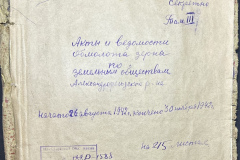 Секретно
Том III
Акты и ведомости
обмолота зерна
по
земельным обществам
Александровского р-на
Начато 26 августа 1942 г. окончено 30 ноября 1942 г.
на 215 листах